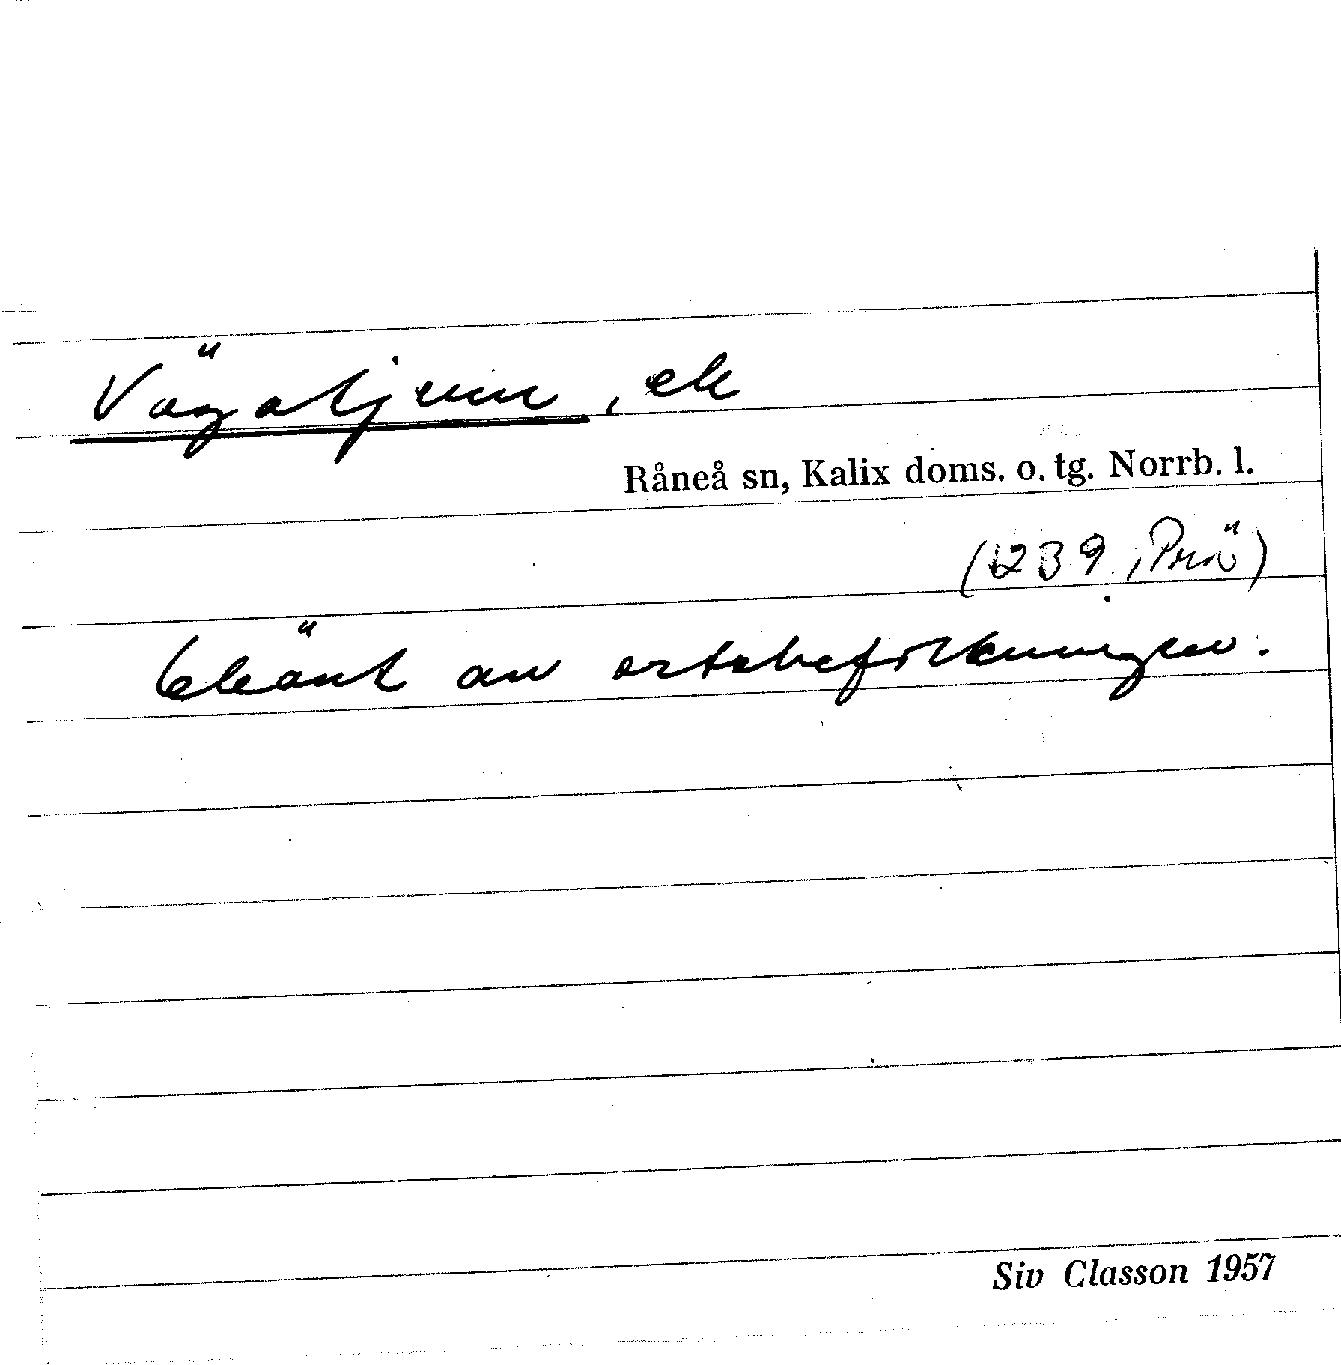 Vägatjern, ek
Råneå sn, Kalix doms. o. tg. Norrb. l.
(1239,
Okänt av ortsbefolkningen.
Siv Classon 1957